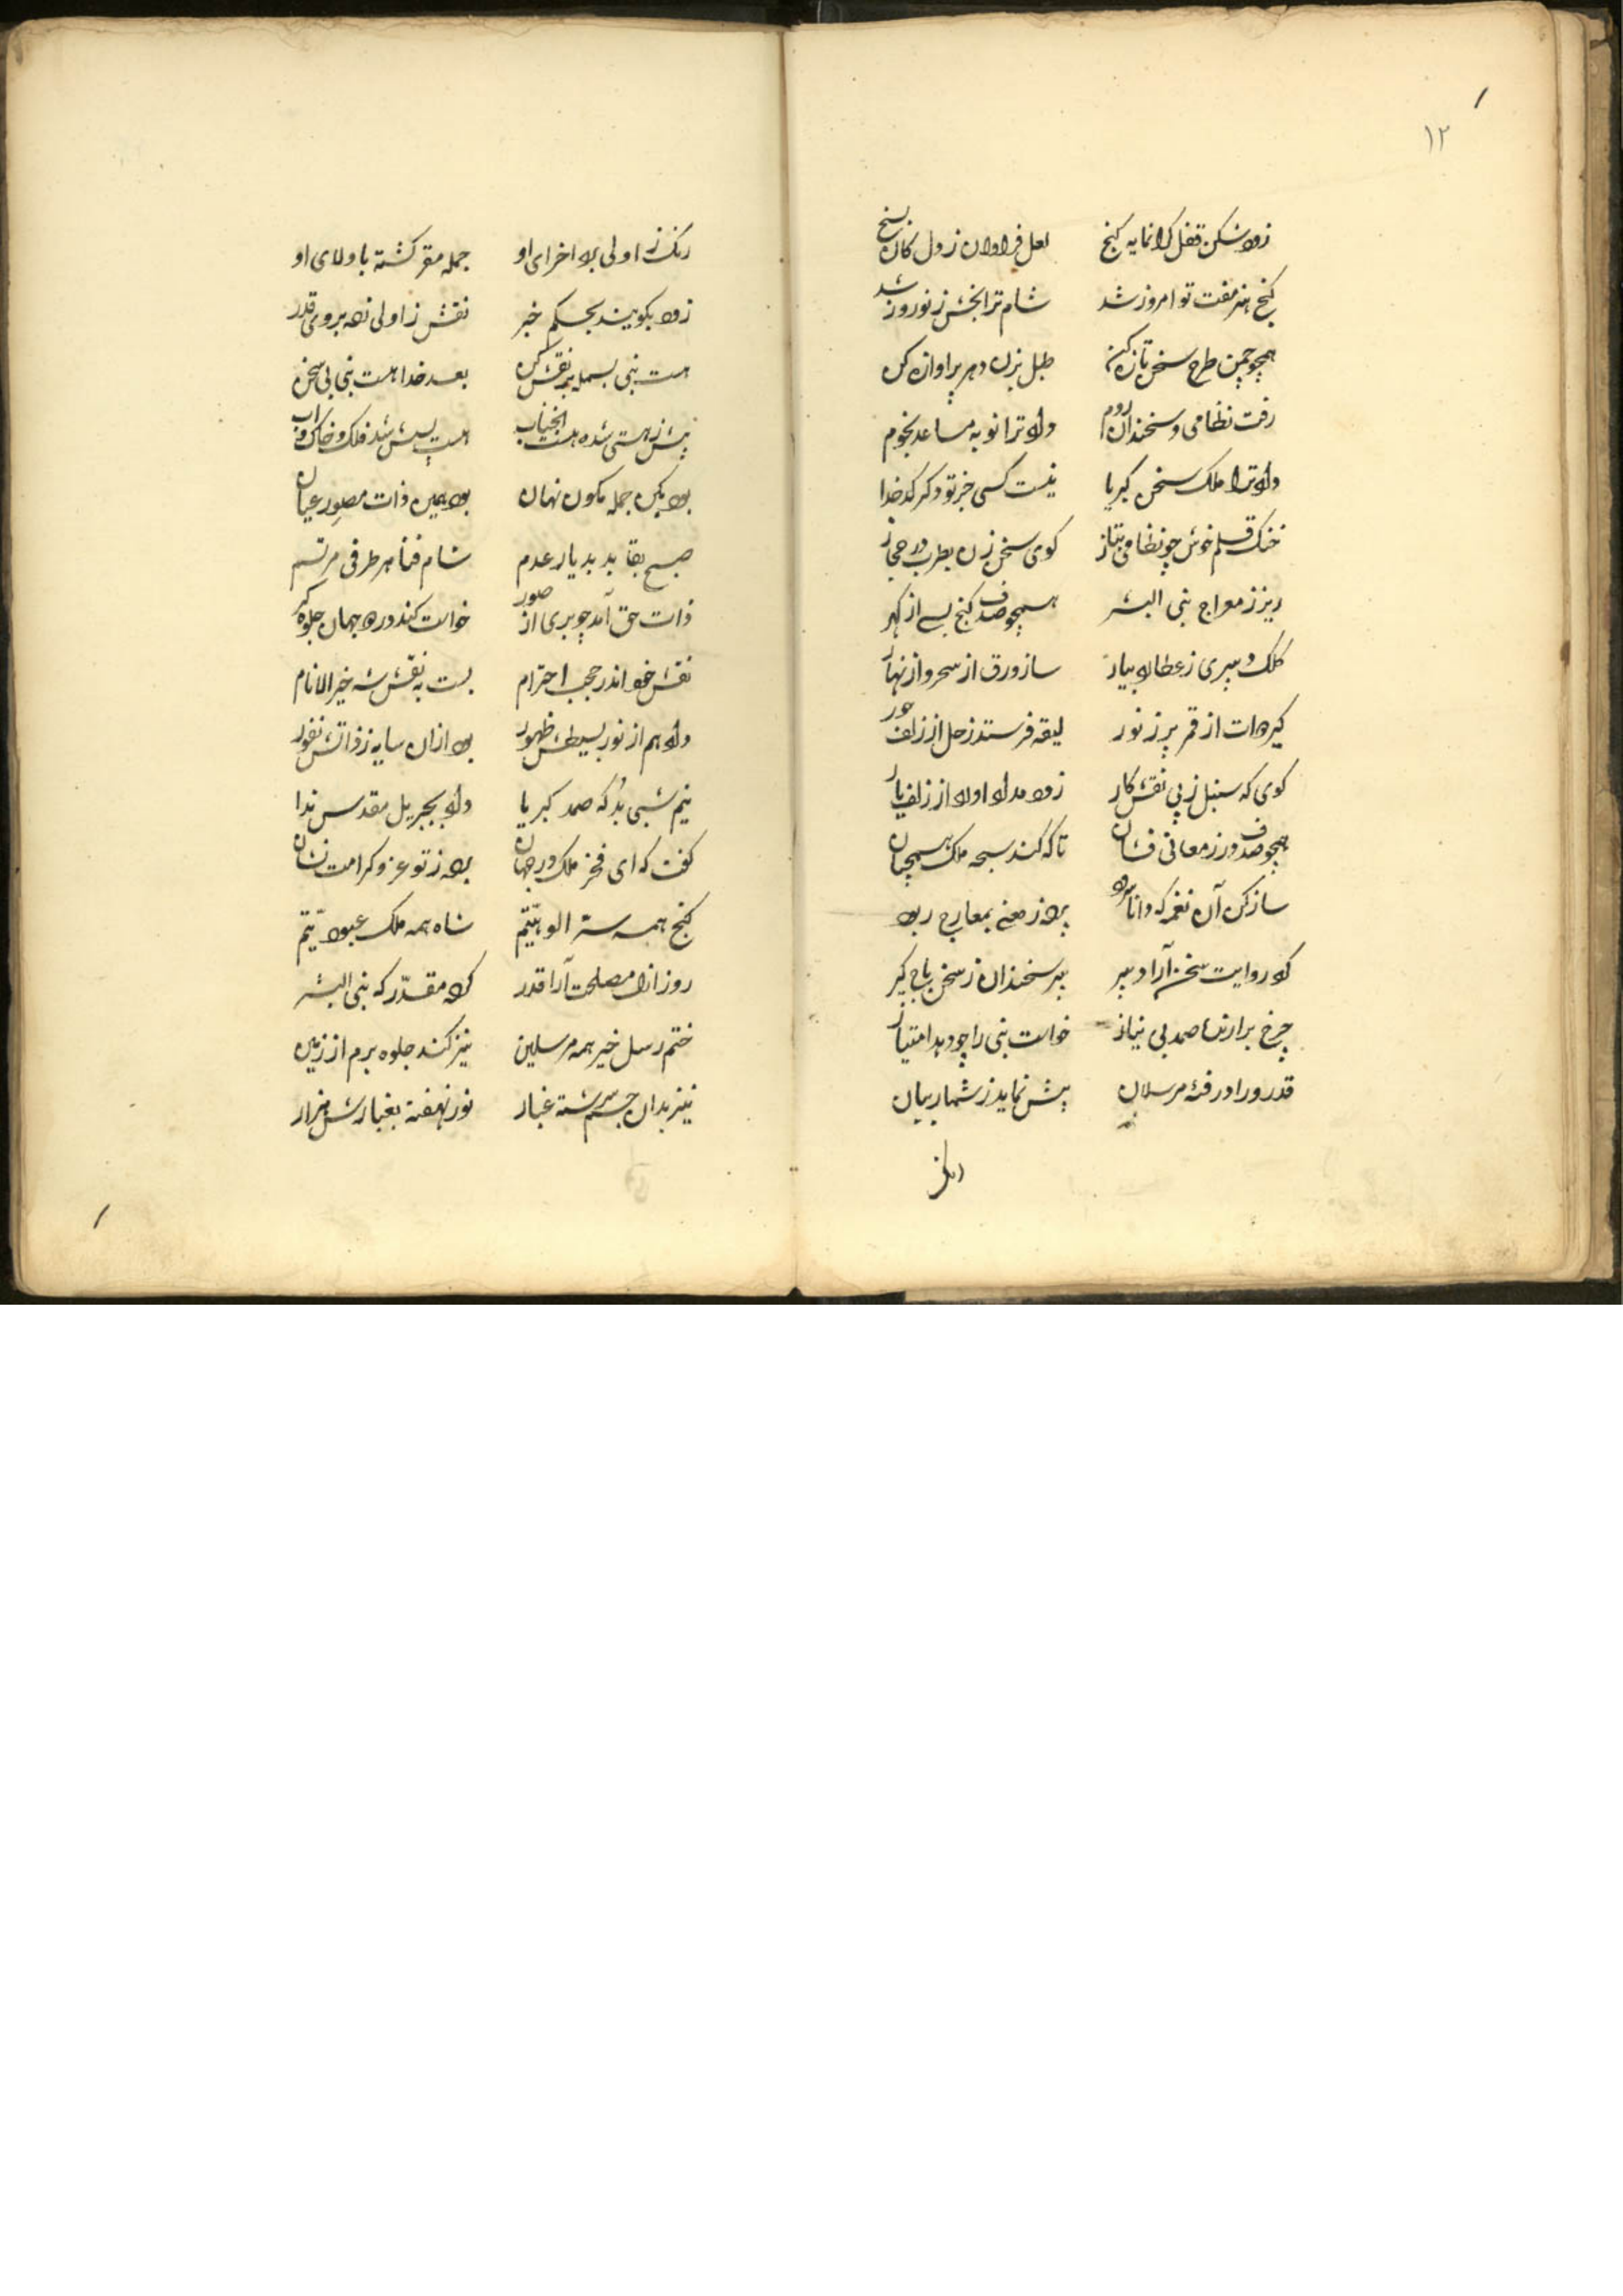 ١٢
زود شکن قفل کرانمایه کنج لعل فراوان ز دل کان بسنج
کنج هنر مفت تو امروز شد شام ترا بخش ز نوروز شد
همچو چمن طرح سخن تازه کن طبل بزن دهر پر اوازه کن
رفت نظامی و سخندان روم داد ترا نوبه مساعد نجوم
داد ترا ملک سخن کبریا نیست کسی جز تو دکر کدخدا
خنک قلم خوش چو نظامی بتاز کوی سخن زن بطرب در حجاز
ریز ز معراج نبی البشر همچو صدف کنج بسے از کهر
کلک دبیری ز عطارد بیار ساز ورق از سحر و از نهار
کیر دوات از قمر پر ز نور لیقه فرستد زحل از زلف حور
کوی که سنبل ز پی نقش کار زود مداد اورد از زلف یار
همچو صدف در ز معانی فشان تا که کند سبحه ملک همچنان
ساز کن آن نغمه که دانا سرود برد ز معنی بمعارج ربود
کرد روایت سخن آرا دبیر پیر سخندان ز سخن باج کیر
چرخ برارنده صمد بی نیاز خواست نبی را چو دهد امتیاز
قدر ورا در فئه مرسلان بیش نماید ز شمار بیان
رنک ز
رنک ز اولی برد اخرای او جمله مقر کشته با ولای او
زود بکویند بحکم خبر نقش ز اولی زده بروی قدر
هست نبی بسمله نقش کن بعد خدا هست نبی بی سخن
پیش ز هستی شده هست انجناب هست پسش شد فلک و خاک و اب
بود بکن جمله مکون نهان بود همین ذات مصور عیان
صبح بقا بد بدیار عدم شام فنا هر طرفی مرتسم
ذات حق آمد چو بری از صور خواست کند در دو جهان جلوه کر
نقش خود اندر حجب احترام بست به نقش شه خیر الانام
داد هم از نور بسیطش ظهور بود ازان سایه ز ذاتش نفور
نیم شبی بد که صمد کبریا داد بجبریل مقدس ندا
کفت که ای فخر ملک در جهان برده ز تو عز و کرامت نشان
کنج همه ستر الوهیّتم شاه همه ملک عبودیّتم
روز ازل مصلحت آرا قدر کرد مقدّر که نبی البشر
ختم رسل خیر همه مرسلین نیز کند جلوه برم از زمین
نیز بدان جسم سرشته غبار نور نهفته بغبارش هزار